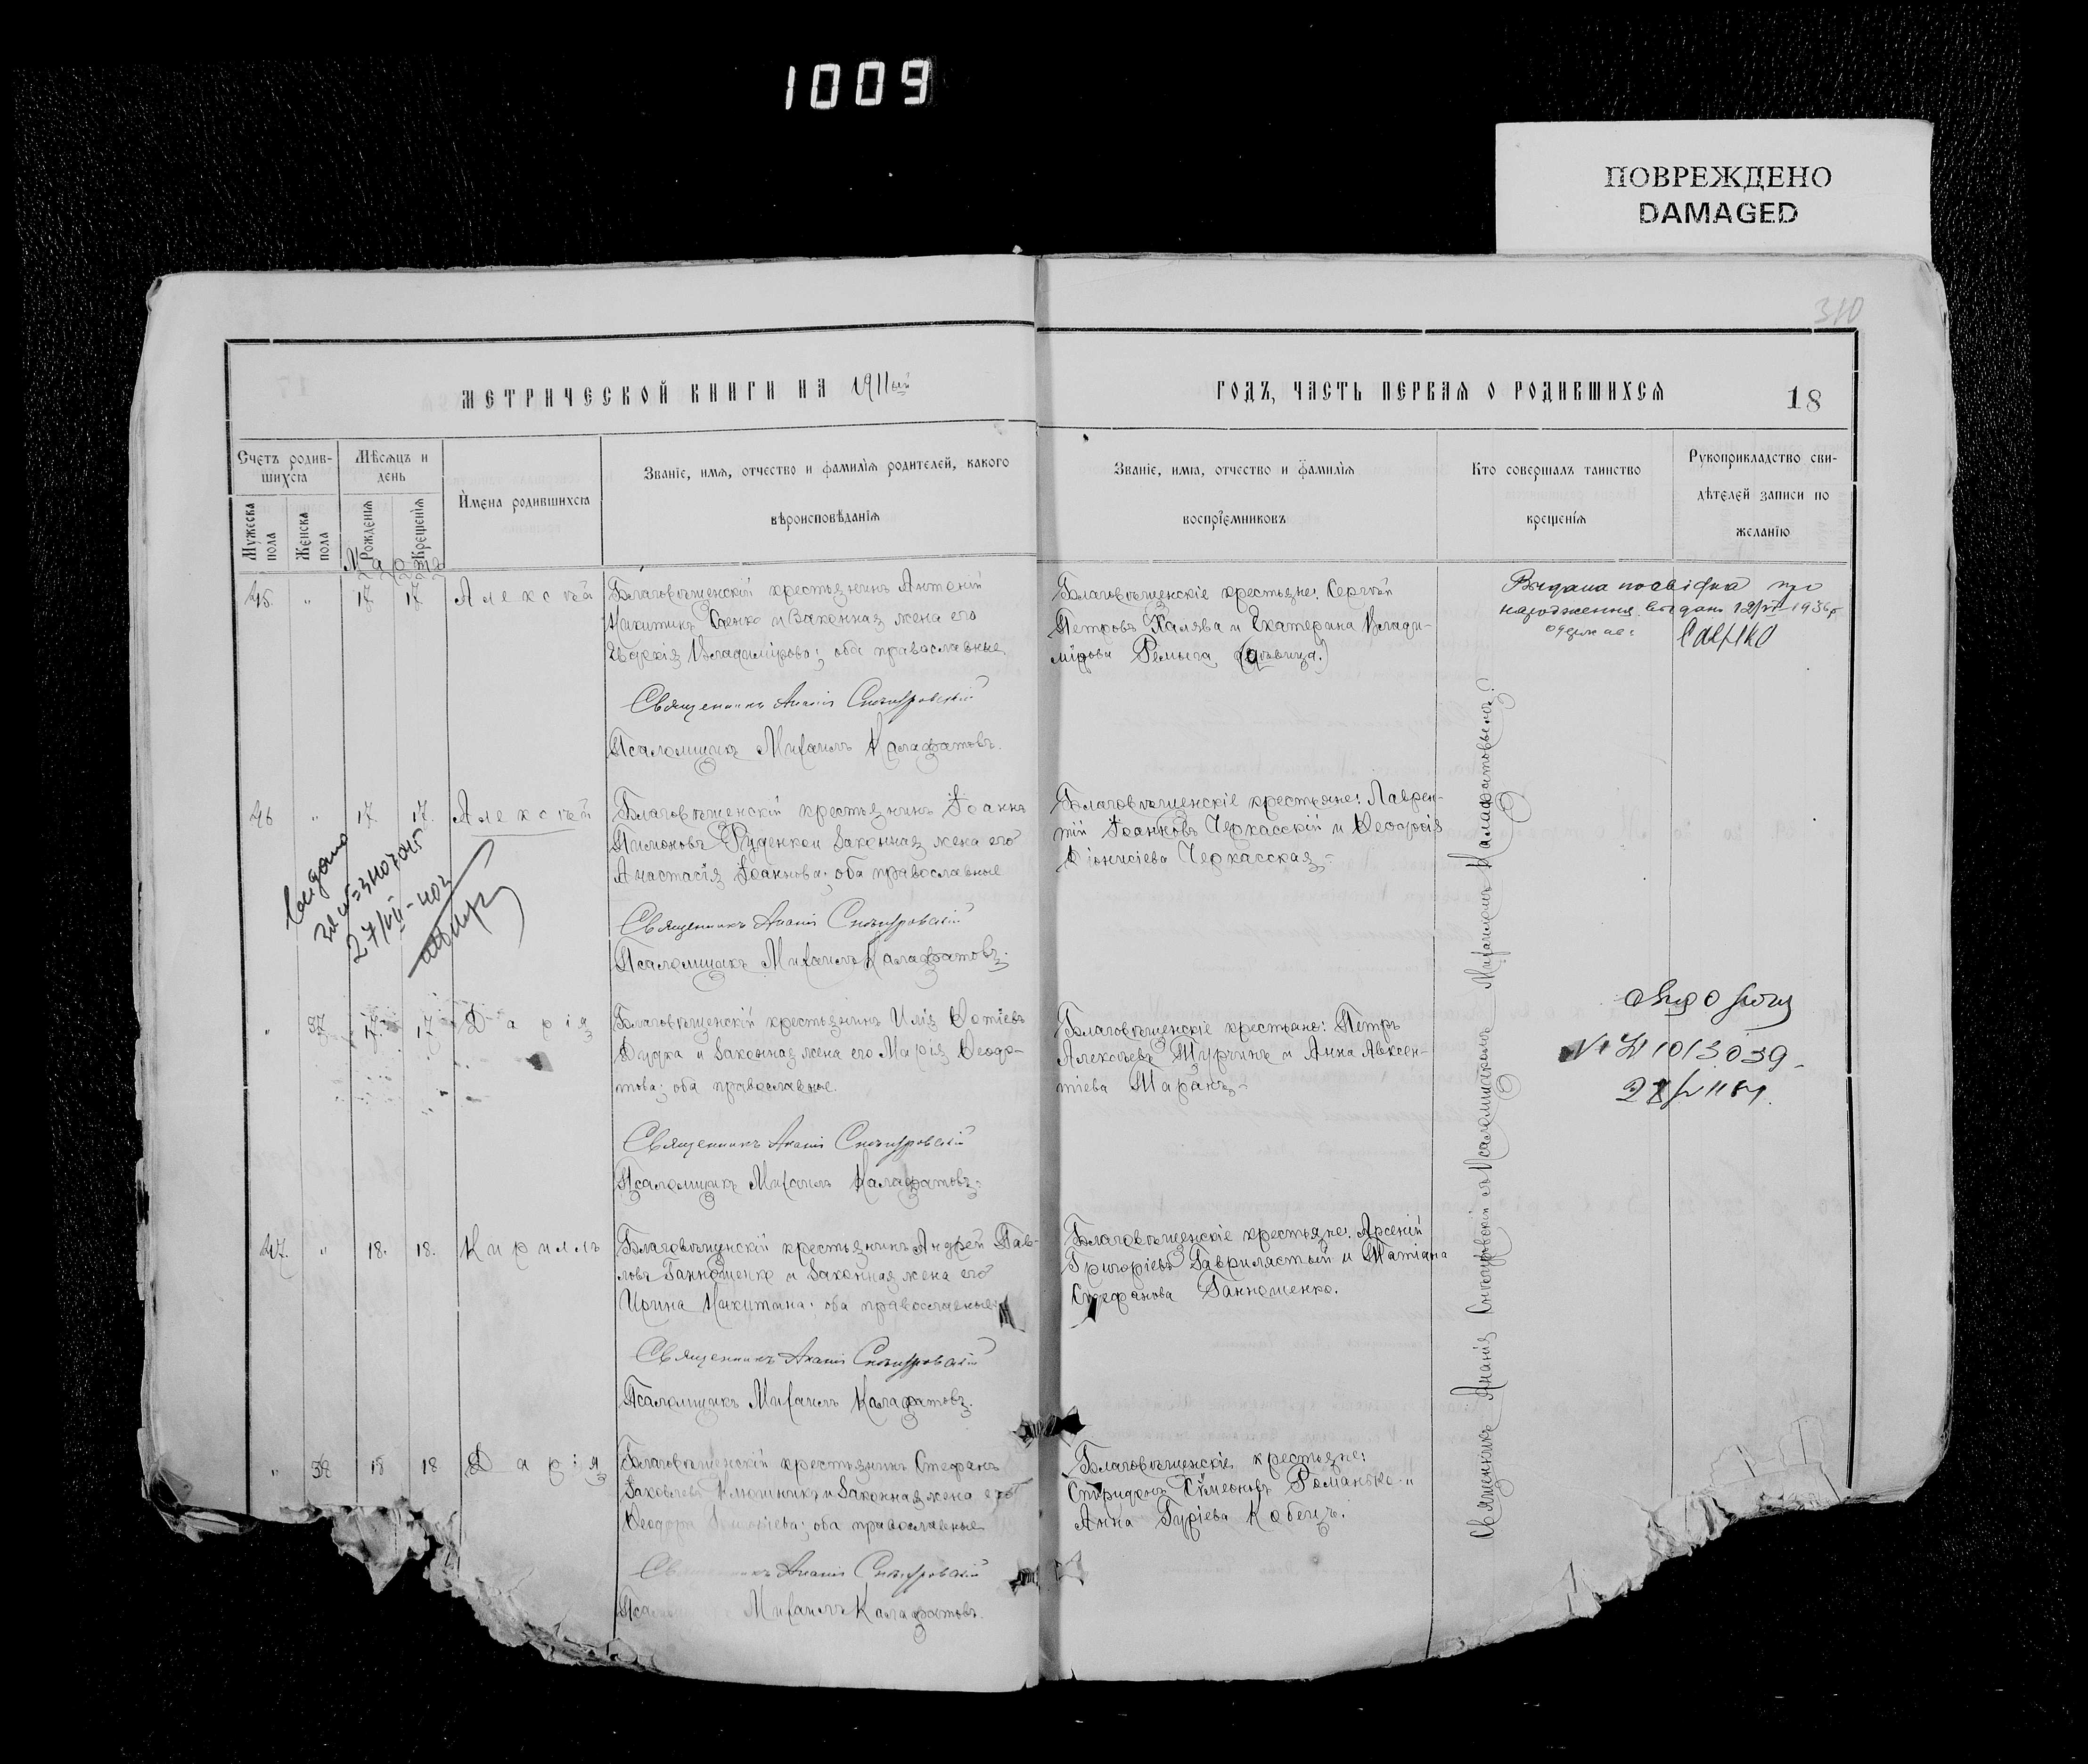 1009
ПОВРЕЖДЕНО
DAMAGED
310
МЕТРИЧЕСКОЙ КНИГИ НА 1911ый
ГОДЪ, ЧАСТЬ ПЕРВАЯ О РОДИВШИХСЯ
18
Счетъ родив-
шихсѧ
Мужеска пола
Женска пола
Мѣсѧцъ и
день
Рожденїѧ
Крещенїѧ
Имена родившихсѧ
Званїе, имѧ, отчество и фамилїѧ родителей, какого
вѣроисповѣданїѧ
Званїе, имѧ, отчество и фамилїѧ
воспрїемниковъ
Кто совершалъ таинство
крещенїѧ
Рукоприкладство сви-
дѣтелей записи по
желанїю
Марта
45. " 17 17 Алексѣй
Благовѣщенскій крестьянинъ Антоній
Никитинъ Саенко и Законная жена его
Владимірова; оба православные
Священникъ Ананія Снѣгуровскій
Псаломщикъ Михаилъ Калафатовъ.
Благовѣщенскіе крестьяне: Сергѣй
Петровъ Халява и Екатерина Влади-
мірова Ремыга (дѣвица.)
Выдана посвідка про
народження 1936р
46 " 17. 17. Алексѣй
Благовѣщенскій крестьянинъ Іоаннъ
Руденко и Законная жена его
Анастасія Іоаннова; оба православные
Священникъ Ананія Снѣгуровскій
Псаломщикъ Михаилъ Калафатовъ.
Благовѣщенскіе крестьяне: Лаврен-
тій Іоанновъ Черкасскій и Ѳеодосія
Діонисіева Черкасская.
" 37 17. 17 Дарія
Благовѣщенскій крестьянинъ Илія Ѳотіевъ
Дудка и Законная жена его Марія Ѳеодо-
това; оба православные.
Священникъ Ананія Снѣгуровскій
Псаломщикъ Михаилъ Калафатовъ.
Благовѣщенскіе крестьяне: Петръ
Алексѣевъ Турчинъ и Анна Авксен-
тіева Таранъ.
1013039
47. " 18. 18. Кириллъ
Благовѣщенскій крестьянинъ Андрей Пав-
ловъ Ганношенко и Законная жена его
Ирина Никитина; оба православные.
Священникъ Ананія Снѣгуровскій
Псаломщикъ Михаилъ Калафатовъ.
Благовѣщенскіе крестьяне: Арсеній
Григоріевъ Гаврилястый и Татіана
Стефанова Ганношенко.
" 38 18 18 Дарія
Благовѣщенскій крестьянинъ Стефанъ
Іаковлевъ Клюшникъ и Законная жена его
Ѳеодора оба православные
Ананія Снѣгуровскій
Михаилъ Калафатовъ.
Благовѣщенскіе крестьяне:
Спиридонъ Сумеоновъ Романько и
Анна Гуріева Кобецъ.
Священникъ Ананія Снѣгуровскій съ Псаломщикомъ Михаиломъ Калафатовымъ.